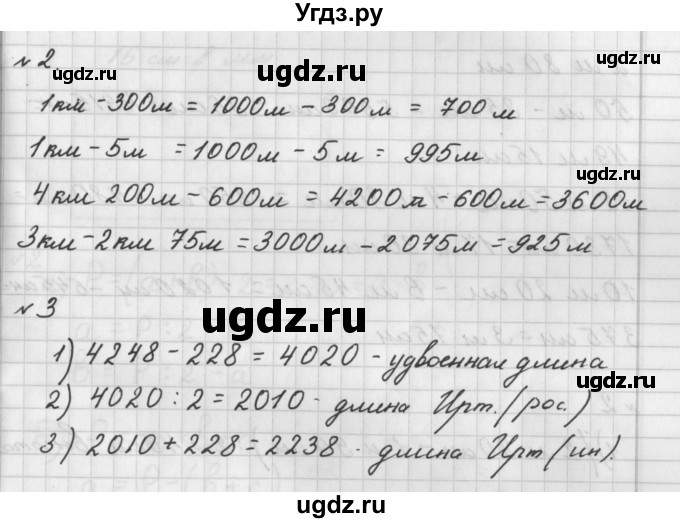 Угдз.ру
№2
ugdz.ru
1км – 300м = 1000м – 300м = 700м
ugdz.ru
1км – 5м = 1000м – 5м = 995м
4км 200м – 600м = 4200м – 600м = 3600м
3км – 2км 75м = 3000м – 2075м = 925м
ugdz.ru
№3
ugdz.ru
1) 4248 – 228 = 4020 - удвоенная длина
ugdz.ru
2) 4020 : 2 = 2010 - длина Ирт. (рос.)
3) 2010 + 228 = 2238 - длина Ирт (ин).
ugdz.ru
ugdz.ru